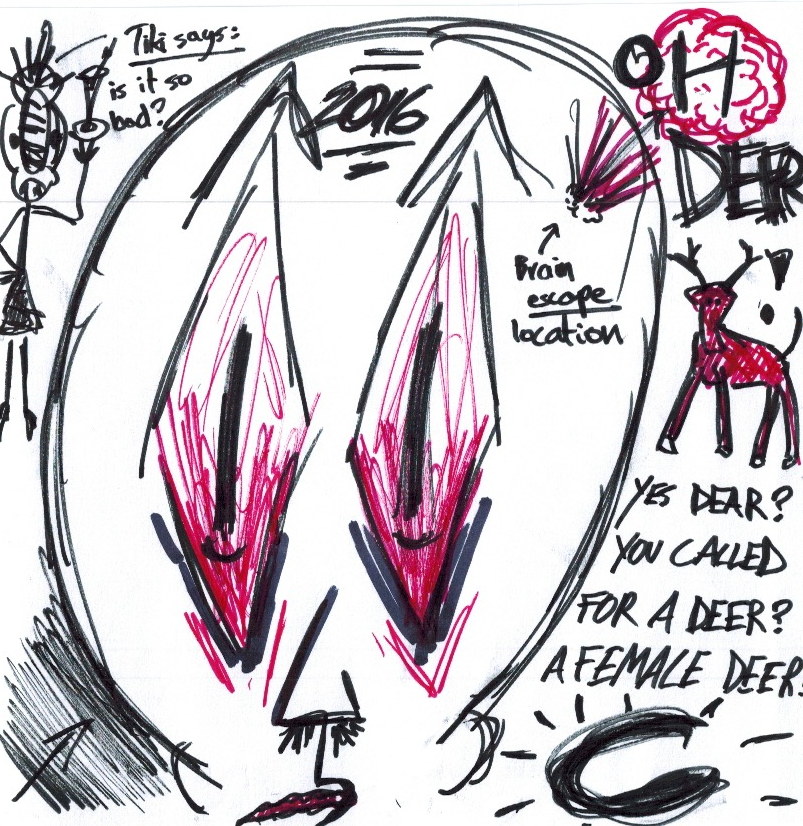 Tiki says:
is it so
bad?
2016
OH
DEER
Brain
escape
location
YES DEAR?
YOU CALLED
FOR A DEER?
A FEMALE DEER?